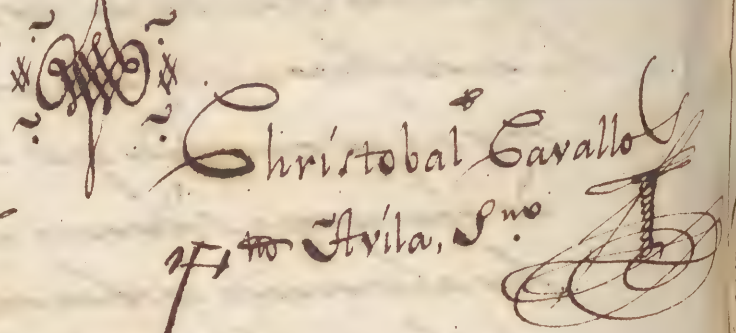 Christobal Cavallo
Avila, S.no